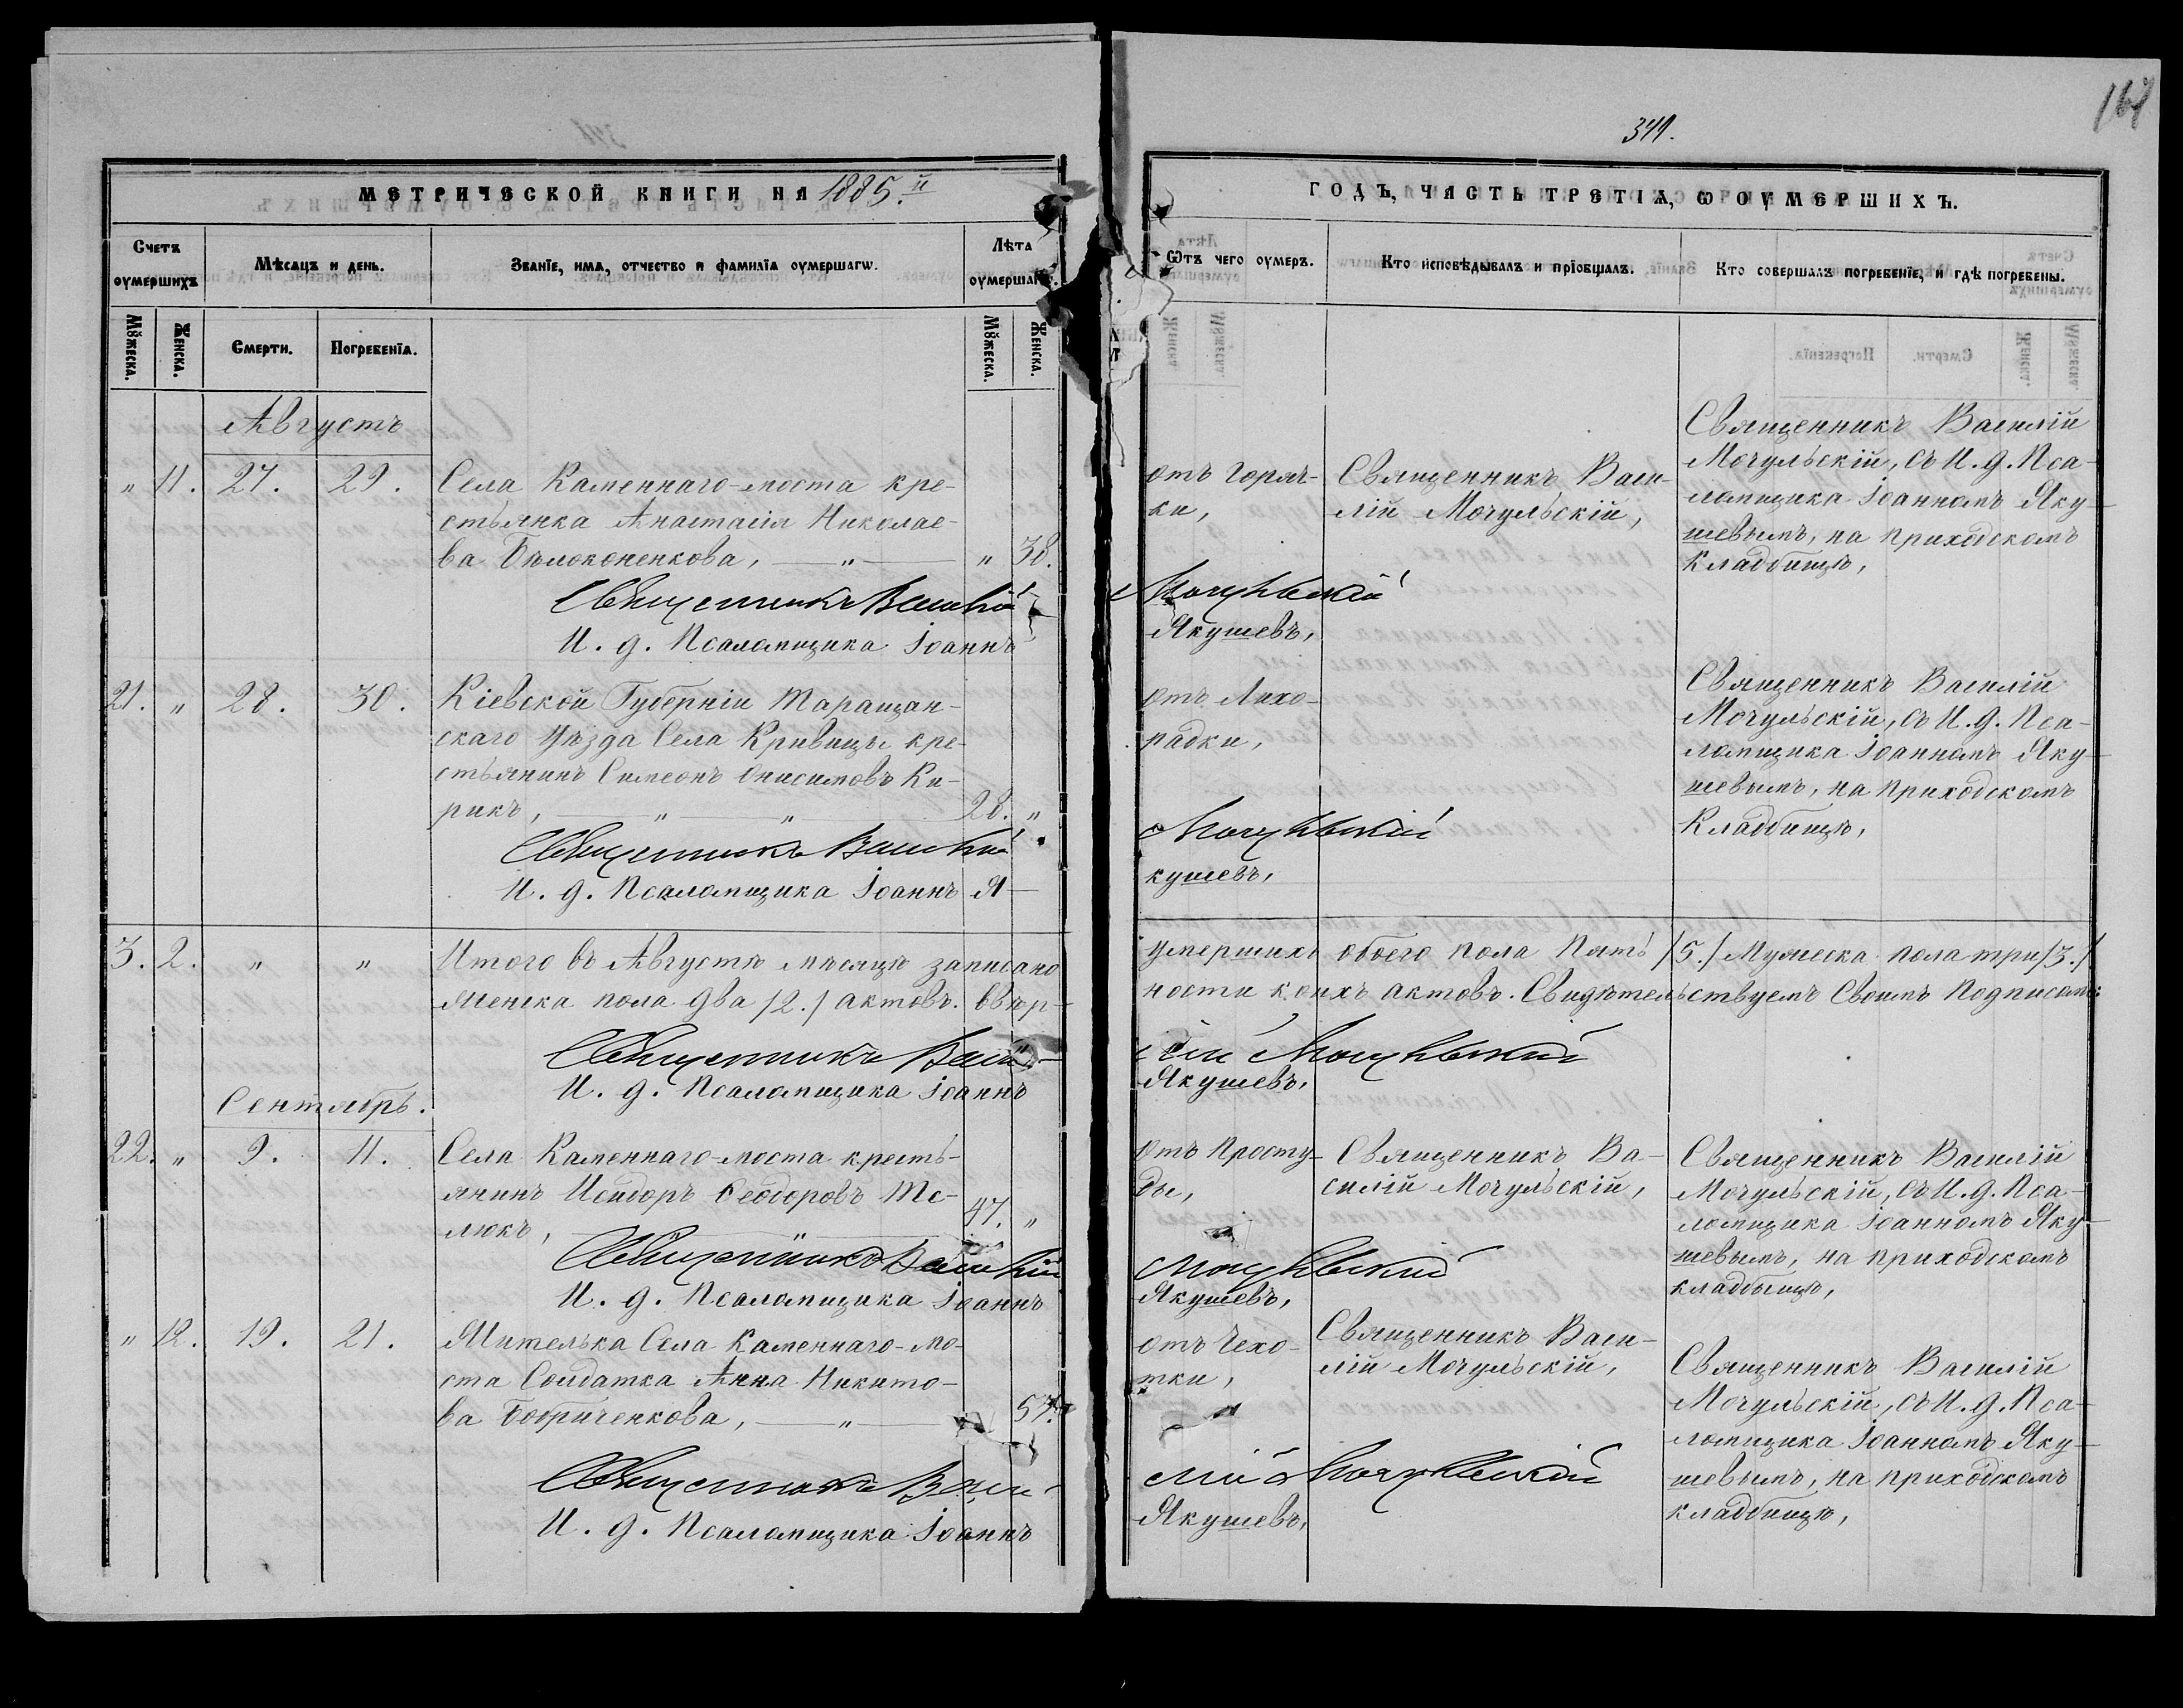 167
341.
МЕТРИЧЕСКОЙ КНИГИ НА 1885.й
ГОДЪ, ЧАСТЬ ТРЕТІѦ, Ѡ ОУМЕРШИХЪ.
Счетъ оумершихъ
Мѣсяцъ и день.
Званїе, имѧ, отчество и фамилїа оумершагѡ.
Лѣта оумершаг
Ѿтъ чего оумеръ.
Кто исповѣдывалъ и прїобщалъ.
Кто совершалъ погребенїе, и гдѣ погребены.
Мꙋжеска.
Женска.
Смерти.
Погребенїѧ.
Мꙋжеска.
Женска.
Августъ
" 11. 27. 29.
Села Каменнаго-моста кре-
стьянка Анастасія Николае-
ва Бѣлоконенкова, — " — " 38.
отъ горяч-
ки,
Священникъ Васи-
лій Мочульскій,
Священникъ Василій
Мочульскій, съ И. д. Пса-
ломщика Іоанномъ Яку-
шевымъ, на приходскомъ
кладбищѣ,
Священникъ Василій Мочульскій
И. д. Псаломщика Іоаннъ Якушевъ,
21. " 28. 30.
Кіевской Губерніи Таращан-
скаго Уѣзда Села Кривицы кре-
стьянинъ Симеонъ Онисимовъ Ки-
рикъ, — " — " — 28. "
отъ Лихо-
радки,
Священникъ Василій
Мочульскій, съ И. д. Пса-
ломщика Іоанномъ Яку-
шевымъ, на приходскомъ
Кладбищѣ,
Священникъ Василій Мочульскій
И. д. Псаломщика Іоаннъ Я-
кушевъ,
3. 2. " "
Итого въ Августѣ мѣсяцѣ записано умершихъ обоего пола Пять /5./ Мужеска пола три /3./
Женска пола два /2./ актовъ. Ввѣр-ности коихъ актовъ. Свидѣтельствуемъ Своимъ Подписомъ:
Священникъ Василій Мочульскій
И. д. Псаломщика Іоаннъ Якушевъ,
Сентябрь.
22. " 9. 11.
Села Каменнаго-моста кресть-
янинъ Исидоръ Ѳеодоровъ Те-
люкъ, 47. "
отъ Просту-
ды,
Священникъ Ва-
силій Мочульскій,
Священникъ Василій
Мочульскій, съ И. д. Пса-
ломщика Іоанномъ Яку-
шевымъ, на приходскомъ
кладбищѣ,
Священникъ Василій Мочульскій
И. д. Псаломщика Іоаннъ Якушевъ,
" 12. 19. 21.
Жителька Села Каменнаго-мо-
ста Солдатка Анна Никито-
ва Бобриченкова, — " — 57.
отъ Чехо-
тки,
Священникъ Васи-
лій Мочульскій,
Священникъ Василій
Мочульскій, съ И. д. Пса-
ломщика Іоанномъ Яку-
шевымъ, на приходскомъ
кладбищѣ,
Священникъ Василій Мочульскій
И. д. Псаломщика Іоаннъ Якушевъ,